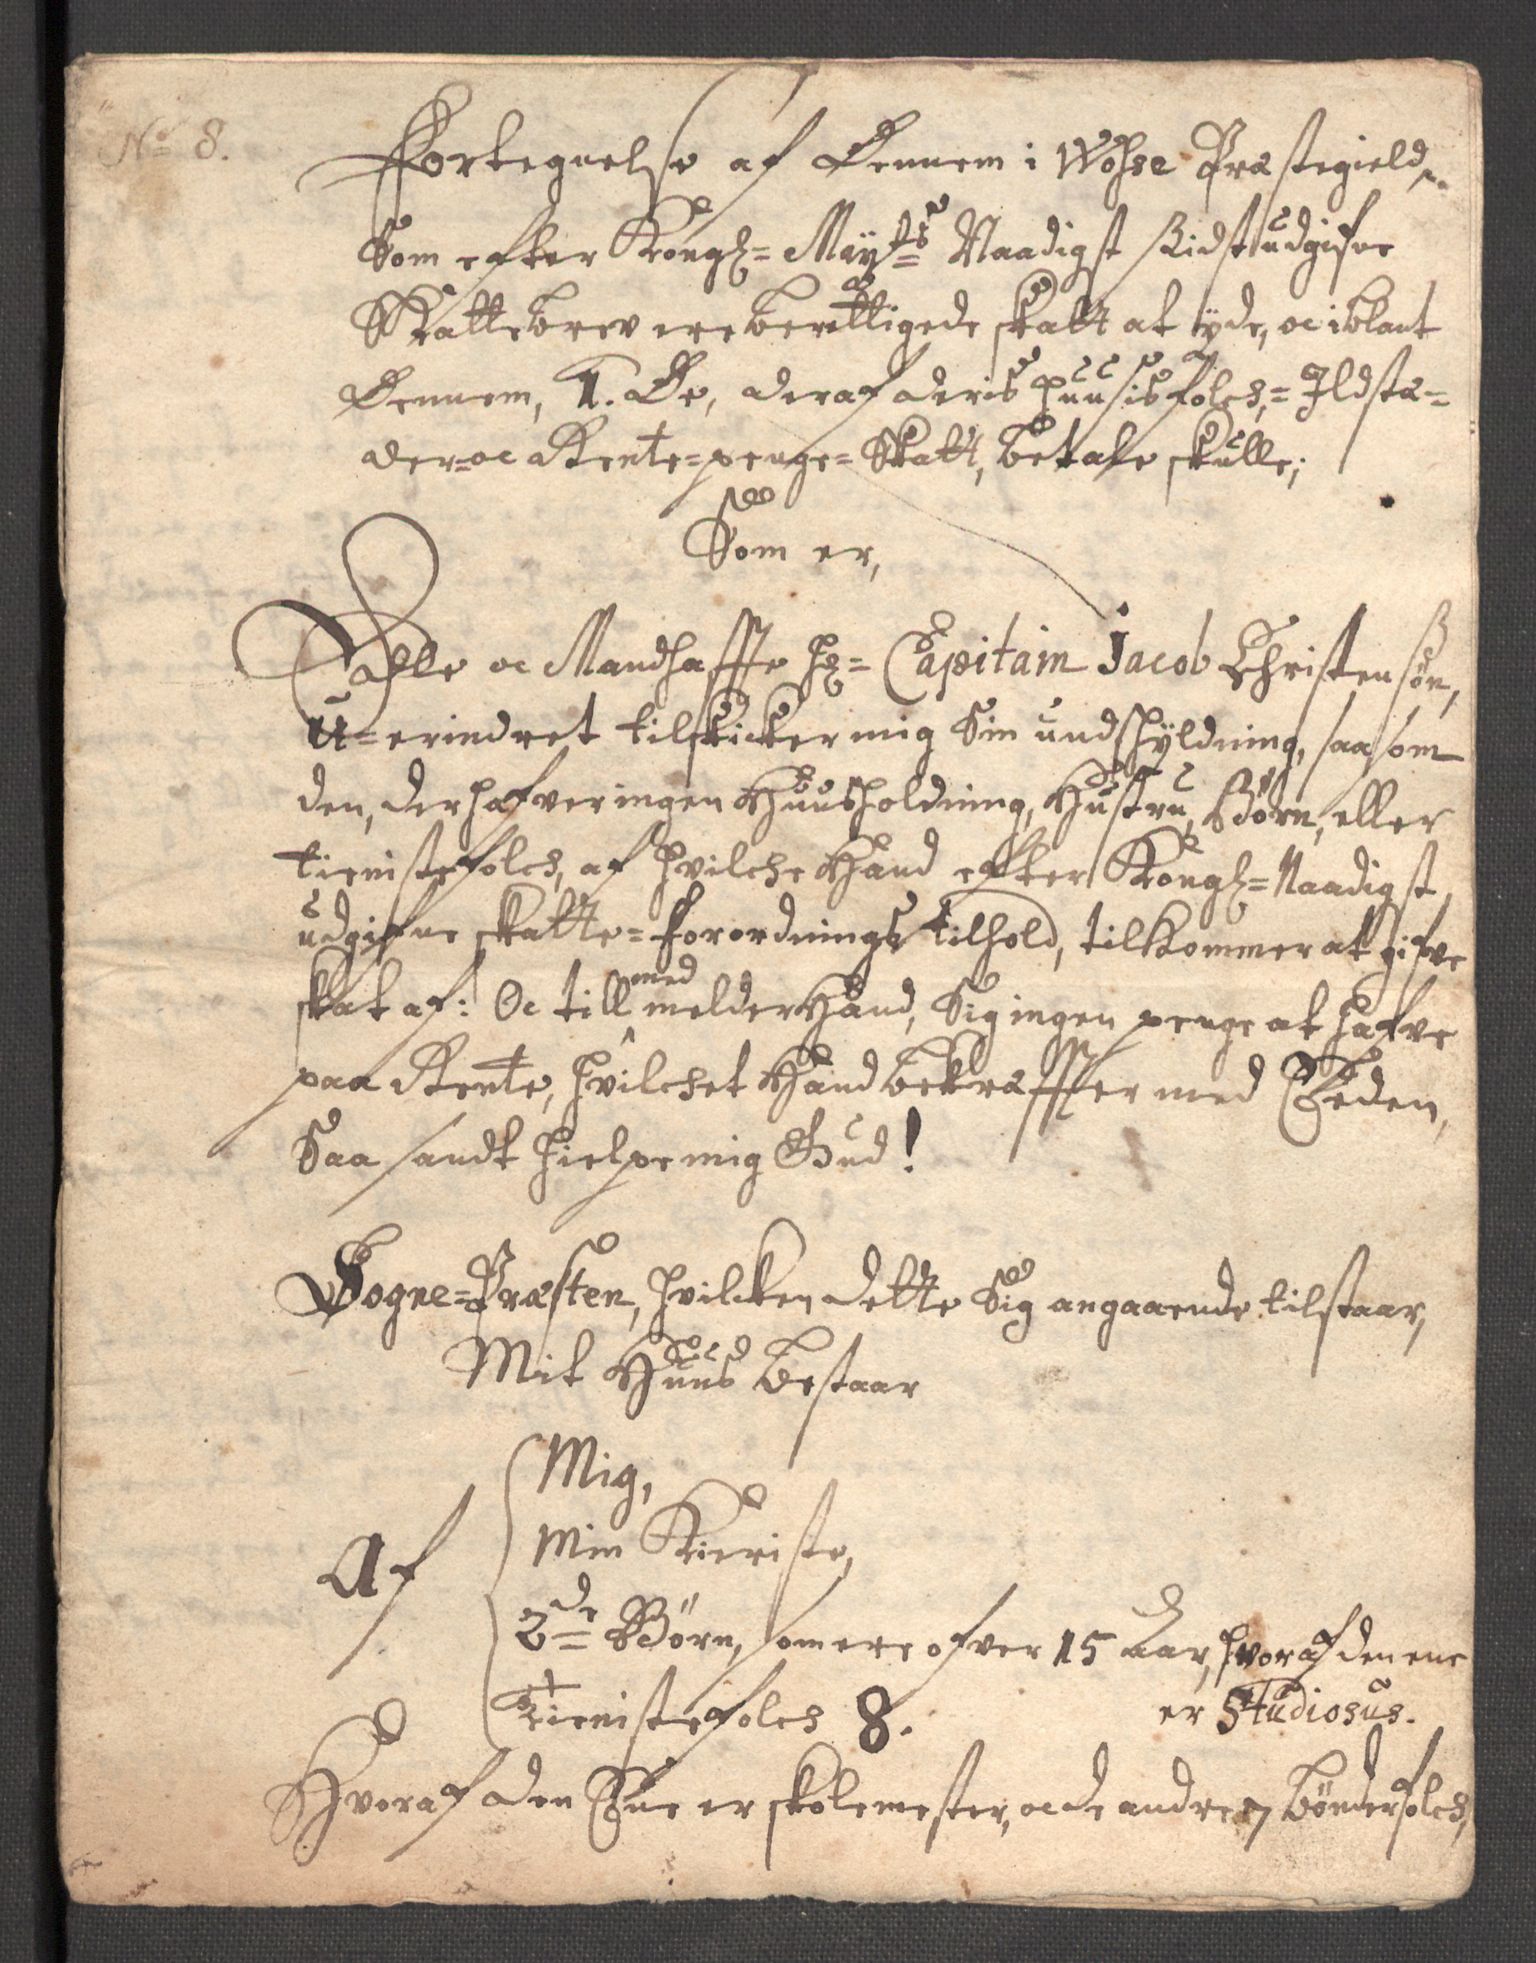 No 8.
Fortegnelse af Dennem i Wohse Præstegield,
Som efter Kongl= Mayts Naadigst sidst udgifne
Skattebrev ere berettigede skatt at yde, oc iblant
Dennem, 1. De, der af deris huusis folch,= Ildstæ=
der=oc Rente=penge=Skatt, betale skulle;
Som er,
Ædle oc Mandhaffte Hr= Capitain Jacob Christensøn,
U=erindret tilskicker mig Sin undskyldning, saasom
den, der hafver ingen Huusholdning, Hustru, Børn, eller
tienistefolch, af hvilche Hand efter Kongl= Naadigst
udgifne skatte=forordnings tilhold, tilkommer at gifve
skat af: Oc till med melder Hand, Sig ingen penge at hafve
paa Rente, hvilchet Hand bekræffter med Eeden,
Saa sandt hielpe mig Gud!
Sogne=Præsten, hvilcken dette Sig angaaende tilstaar,
Mit Huus bestaar
Af
Mig,
Min Kieriste,
2de Børn, som ere ofver 15 Aar, hvoraf den ene
er Studiosus.
Tienistefolch 8.
Hvoraf den Ene er skolemester, oc de andre 7 bønderfolch,